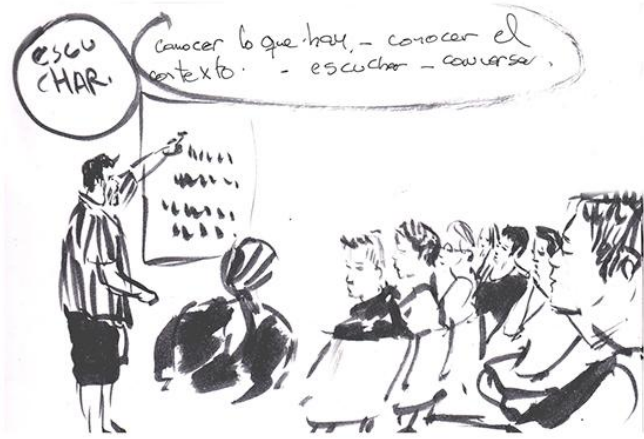 escu
CHAR.
conocer lo que hay, - conocer el
contexto. - escuchar - conversar.